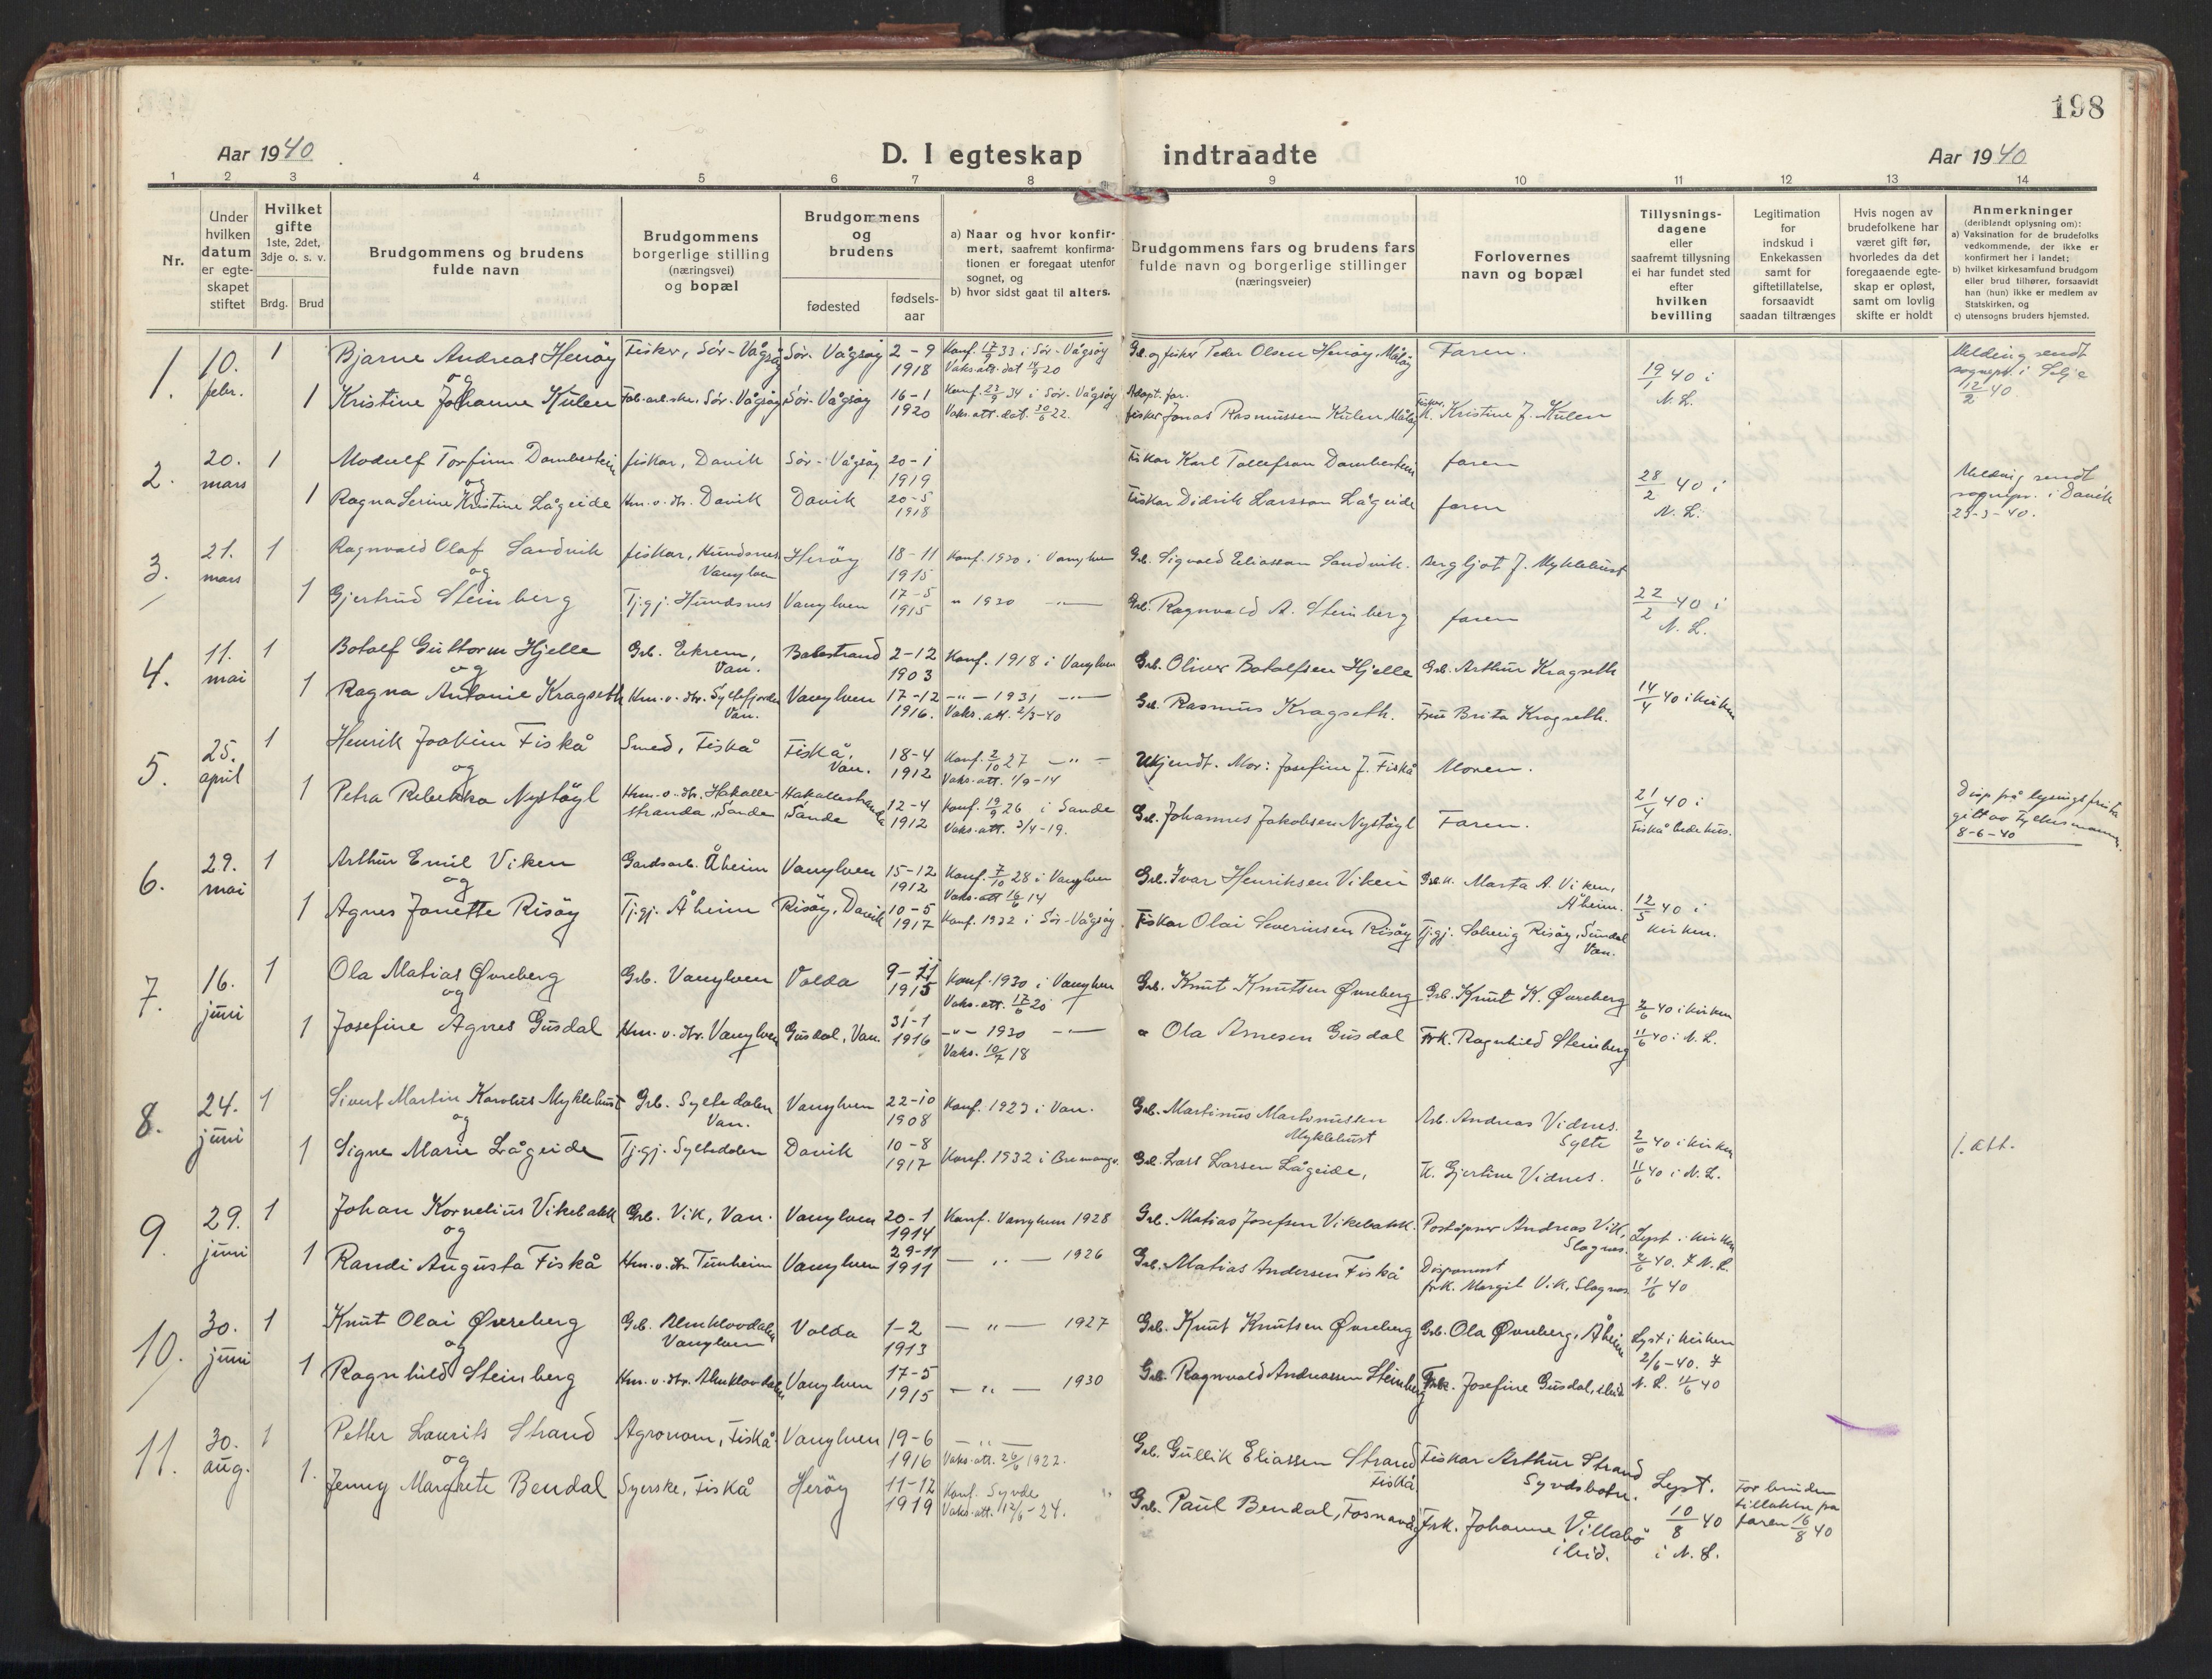 198
Aar 1940
D. I egteskap indtraadte
Aar 1940
1 2 3 4 5 6 7 8 9 10 11 12 13 14
Nr.
Under hvilken datum er egteskapet stiftet
Hvilket gifte 1ste, 2det, 3dje o. s. v.
Brdg. Brud
Brudgommens og brudens fulde navn
Brudgommens borgerlige stilling (næringsvei) og bopæl
Brudgommens og brudens
fødested
fødsels-aar
a) Naar og hvor konfirmert, saafremt konfirmationen er foregaat utenfor sognet, og
b) hvor sidst gaat til alters.
Brudgommens fars og brudens fars fulde navn og borgerlige stillinger (næringsveier)
Forlovernes navn og bopæl
Tillysnings-dagene eller saafremt tillysning ei har fundet sted efter hvilken bevilling
Legitimation for indskud i Enkekassen samt for giftetillatelse, forsaavidt saadan tiltrænges
Hvis nogen av brudefolkene har været gift før, hvorledes da det foregaaende egteskap er opløst, samt om lovlig skifte er holdt
Anmerkninger (deriblandt oplysning om):
a) Vaksination for de brudefolks vedkommende, der ikke er konfirmert her i landet;
b) hvilket kirkesamfund brudgom eller brud tilhører, forsaavidt han (hun) ikke er medlem av Statskirken, og
c) utensogns bruders hjemsted.
1. 10. febr. 1 Bjarne Andreas Henøy Fisker, Sør-Vågsøy Sør-Vågsøy 2-9 1918 Konf. 17/9 33 i Sør-Vågsøy Gb. og fisker Peder Olsen Henøy, Måløy Faren.
og
1 Kristine Johanne Kulen Fab.arb.ske, Sør-Vågsøy Sør-Vågsøy 16-1 1920 Konf. 23/9-34 i Sør-Vågsøy Vaks.att. dat. 30/6 22. Adopt.far. fisker Jonas Rasmussen Kulen, Måløy K. Kristine J. Kulen
19/1 40 i N. L.
Melding sendt sognepr. i Selje 12/2 40.
2. 20. mars 1 Modulf Torfinn Dombestein fiskar, Davik Sør-Vågsøy 20-1 1919 Fiskar Karl Tollefson Dombestein faren
og
1 Ragna Serine Kristine Lågeide Hm. v. hr. Davik Davik 20-5 1918 Fiskar Didrik Larsson Lågeide faren
28/2 40 i N. L.
Melding sendt sognepr. i Davik 23-3-40.
3. 21. mars 1 Ragnvald Olaf Sandvik fiskar, Hundsnes Vanylven Herøy 18-11 1915 Konf. 1930 i Vanylven Gb. Sigvald Eliassen Sandvik. Bergljot J. Myklebust
og
1 Gjertrud Steinberg Tj.gj. Hundsnes Vanylven 17-5 1915 " 1930 — " — Gb. Ragnvald A. Steinberg faren
22/2 40 i N. L.
4. 11. mai 1 Botolf Guttorm Hjelle Grb. Ekrem, Van. Balestrand 2-12 1903 Konf. 1918 i Vanylven Grb. Oliver Botolfsen Hjelle Grb. Arthur Kragseth
og
1 Ragna Antonie Kragseth Hm. v. hr. Syltefjorden Van. Vanylven 17-12 1916. — " — 1931 — " — Vaks. att. 2/3-40 Gb. Rasmus Kragseth. Fru Brita Kragseth.
14/4 40 i kirken
5. 25. april 1 Henrik Joakim Fiskå Smed, Fiskå Fiskå, Van. 18-4 1912 Konf. 2/10 27 — " — Vaks. att. 1/9-14 Ukjendt. Mor: Josefine J. Fiskå Moren.
og
1 Petra Rebekka Nystøyl Hm. v. hr. Hakallestranda, Sande Hakallestranda Sande 12-4 1912 Konf. 19/9 26 i Sande Vaks. att. 3/4-19. Gb. Johannes Jakobsen Nystøyl Faren.
21/4 40 i Fiskå bedehus.
Disp på lysingsfrista gitt av Fylkesmannen 8-6-40
6. 29. mai 1 Arthur Emil Viken Gardsarb. Åheim Vanylven 15-12 1912 Konf. 7/10 28 i Vanylven Vaks.att 16/6 14 Grb. Ivar Henriksen Viken Marta A. Viken, Åheim.
og
1 Agnes Jonette Risøy Tj.gj. Åheim Risøy, Davik 10-5 1917 Konf. 1932 i Sør-Vågsøy Fiskar Olai Severinsen Risøy Tj.gj. Solveig Risøy, Sundal Van.
12/5 40 i kirken.
7. 16. juni 1 Ola Matias Øvreberg Grb. Vanylven Volda 9-11 1915 Konf. 1930 i Vanylven Vaks. att. 17/6 20 Grb. Knut Knutsen Øvreberg Grb. Knut K. Øvreberg 2/6 40 i kirken
og
1 Josefine Agnes Gusdal Hm. v. hr. Vanylven Gusdal, Van. 31-1 1916 — " — 1930 — " — Vaks. 10/7 18 " Ola Arnesen Gusdal Frk. Ragnhild Steinberg 11/6 40 i N. L.
8. 24. juni 1 Sivert Martin Karolus Myklebust Grb. Syltedalen Van. Vanylven 22-10 1908 Konf. 1923 i Van. Grb. Martinus Martinussen Myklebust Arb. Andreas Vidnes. Sylte 2/6 40 i kirken
og
1 Signe Marie Lågeide Tj.gj. Syltedalen Davik 10-8 1917 Konf. 1932 i Bremanger Gb. Lars Larsen Lågeide, K. Gjertine Vidnes. 11/6 40 i N. L.
1. att.
9. 29. juni 1 Johan Kornelius Vikebakk Grb. Vik, Van. Vanylven 20-1 1914 Konf. Vanylven 1928 Grb. Matias Josefsen Vikebakk. Poståpner Andreas Vik, Slagnes. Lyst i kirken
og
1 Randi Augusta Fiskå Hm. v. hr. Tunheim Vanylven 29-11 1911 — " — 1926 Grb. Matias Andersen Fiskå Disponent frk. Margit Vik, Slagnes 2/6 40. I N. L. 11/6 40
10. 30. juni 1 Knut Olai Øvreberg Grb. Almklovdalen Vanylven Volda 1-2 1913 — " — 1927 Grb. Knut Knutsen Øvreberg Grb. Ola Øvreberg, Åheim Lyst i kirken 2/6-40. I
og
1 Ragnhild Steinberg Hm. v. hr. Almklovdalen Vanylven 17-5 1915 — " — 1930 Grb. Ragnvald Andreassen Steinberg Frk. Josefine Gusdal, ibid N. L. 11/6 40
11. 30. aug. 1 Petter Laurits Strand Agronom, Fiskå Vanylven 19-6 1916 — " — Vaks.att. 20/6 1922. Grb. Gullik Eliassen Strand Fiskå Fiskar Arthur Strand Syvdsbotn.
og
1. Jenny Margrete Bendal Syerske, Fiskå Herøy 11-12 1919 Konf. Syvde Vaks.att. 12/6-24. Grb. Paul Bendal, Fosnavåg Frk. Johanne Villabø ibid.
Lyst. 10/8 40 i N. L.
For bruden tillatelse fra faren 16/8 40